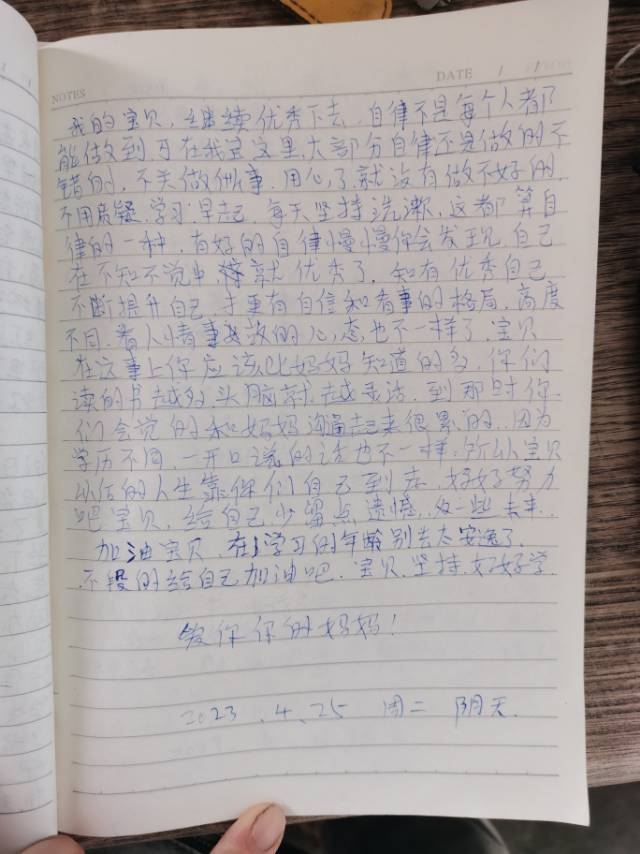 NOTES
DATE / /
我的宝贝，继续优秀下去，自律不是每个人都
能做到，可在我宝这里，大部分自律还是做的不
错的，不关做什事，用心了就没有做不好的，
不用质疑，学习，早起，每天坚持洗漱，这都算自
律的一种，有好的自律慢慢你会发现，自己
在不知不觉中，就优秀了，知有优秀自己
不断提升自己，才更有自信和看事的格局，高度
不同，看人情事故的心态也不一样了，宝贝
在这事上你应该比妈妈知道的多，你们
读的书越多头脑就越灵活，到那时你
们会觉的和妈妈沟通起来很累的，因为
学历不同，一开口说的话也不一样，所以宝贝
以后的人生靠你们自己到走，好好努力
吧宝贝，给自己少留点遗憾，
加油宝贝，在学习的年龄别去太安逸了，
不段的给自己加油吧，宝贝，坚持，好好学
爱你你的妈妈！
2023.4.25 周二 阴天